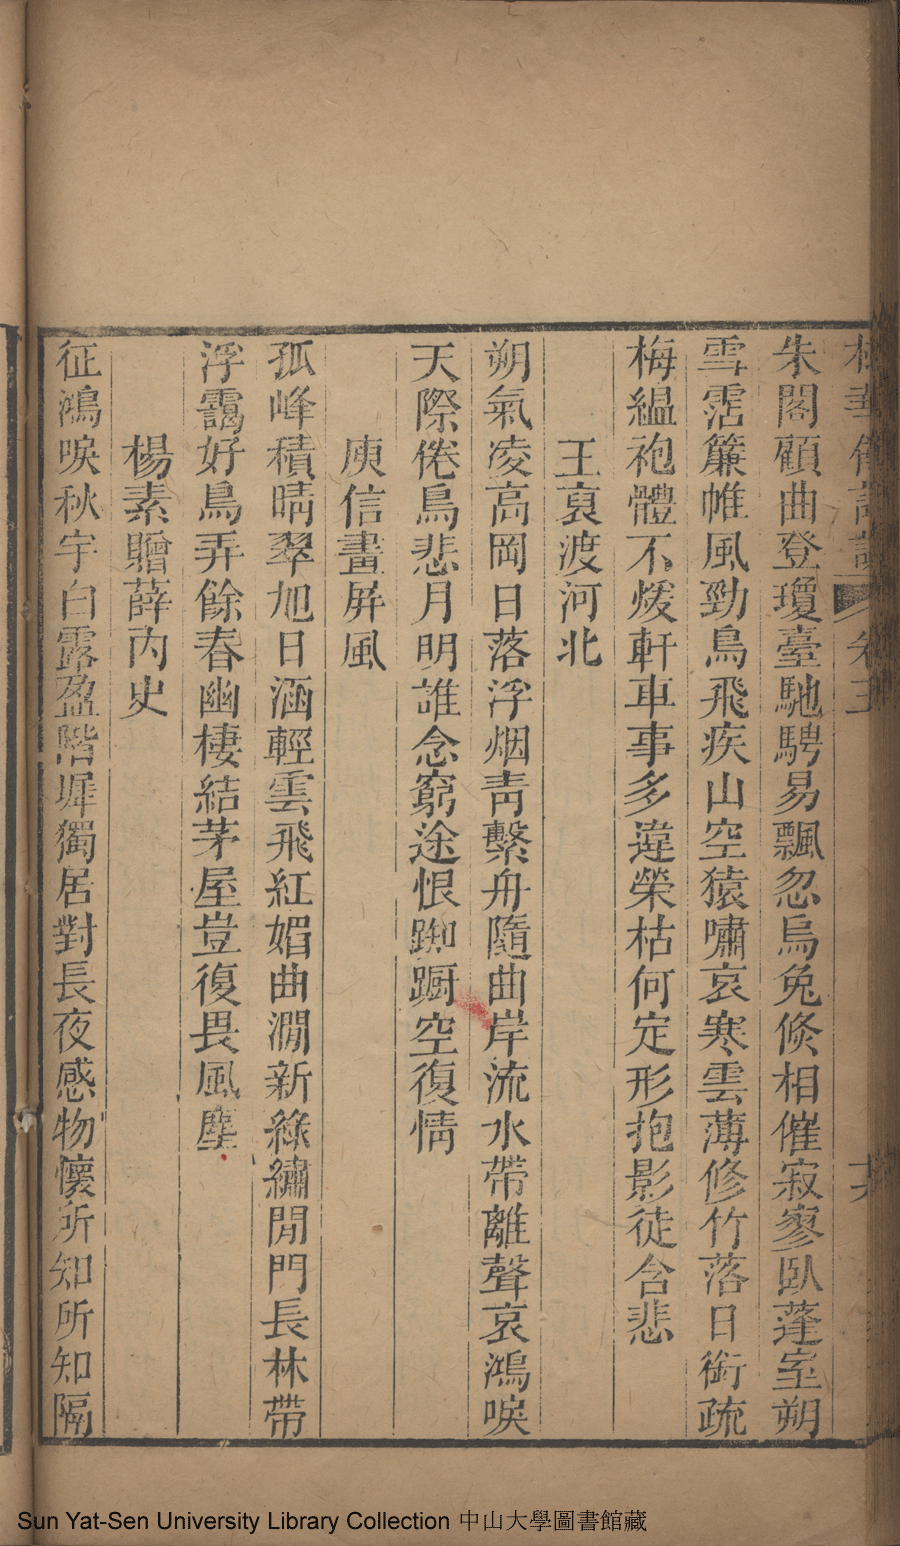 卷三
朱閣顧曲登瓊臺馳騁易飄忽烏兔倐相催寂寥臥蓬室朔
雪霑簾帷風勁鳥飛疾山空猿嘯哀寒雲薄修竹落日銜疏
梅縕袍體不煖軒車事多違榮枯何定形抱影徒含悲
王裒渡河北
朔氣凌高岡日落浮烟靑繫舟隨曲岸流水帶離聲哀鴻唳
天際倦鳥悲月明誰念窮途恨踟蹰空復情
庾信畫屏風
孤峰積晴翠旭日涵輕雲飛紅媚曲澗新綠繡閒門長林帶
浮靄好鳥弄餘春幽棲結茅屋豈復畏風塵
楊素贈薛內史
征鴻唳秋宇白露盈階墀獨居對長夜感物懷所知所知隔
Sun Yat-Sen University Library Collection 中山大學圖書館藏